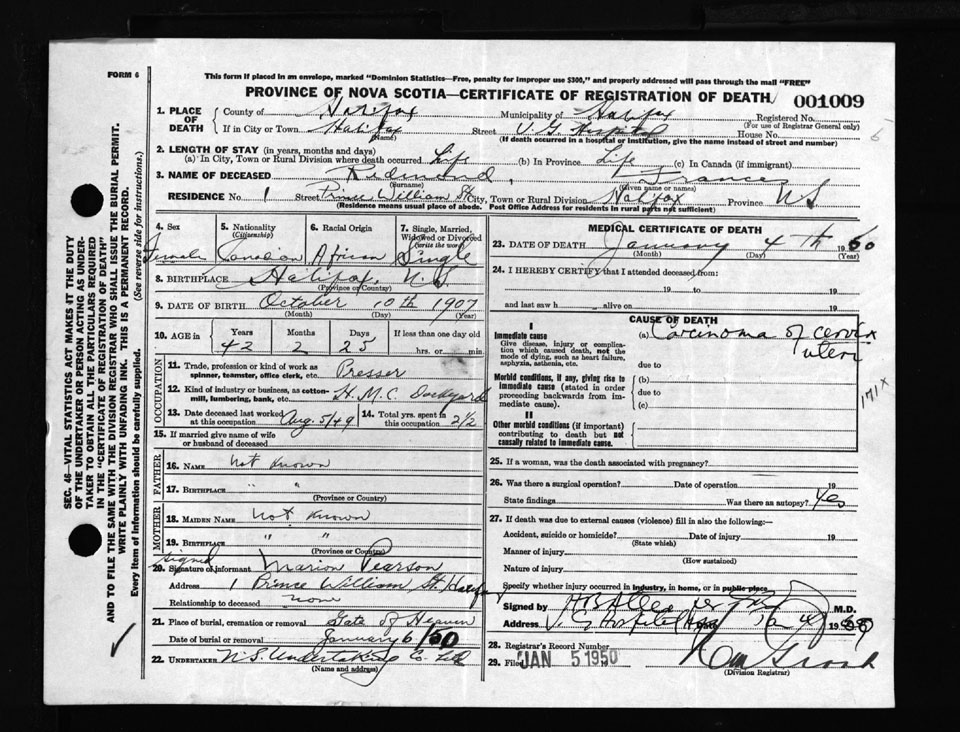 FORM 6
This form if placed in an envelope, marked "Dominion Statistics—Free, penalty for improper use $300," and properly addressed will pass through the mail "FREE"
PROVINCE OF NOVA SCOTIA—CERTIFICATE OF REGISTRATION OF DEATH 001009
1. PLACE OF DEATH County of Halifax Municipality of Halifax Registered No.
(For use of Registrar General only)
If in City or Town Halifax Street V. G. Hospital House No.
(Name) (If death occurred in a hospital or institution, give the name instead of street and number)
2. LENGTH OF STAY (in years, months and days)
(a) In City, Town or Rural Division where death occurred Life (b) In Province Life (c) In Canada (if immigrant)
3. NAME OF DECEASED Redmond, Frances
(Surname) (Given name or names)
RESIDENCE No. 1 Street Prince William St. City, Town or Rural Division Halifax Province NS
(Residence means usual place of abode. Post Office Address for residents in rural parts not sufficient)
4. Sex 5. Nationality (Citizenship) 6. Racial Origin 7. Single, Married, Widowed or Divorced (write the word)
Female Canadian African Single
8. BIRTHPLACE Halifax, N.S.
(Province or Country)
9. DATE OF BIRTH October 10th 1907
(Month) (Day) (Year)
10. AGE in Years Months Days If less than one day old
42 2 25 hrs. or min.
OCCUPATION
11. Trade, profession or kind of work as spinner, teamster, office clerk, etc. Presser
12. Kind of industry or business, as cotton-mill, lumbering, bank, etc. H.M.C. Dockyard
13. Date deceased last worked at this occupation Aug. 5/49 14. Total yrs. spent in this occupation 2½
15. If married give name of wife or husband of deceased
FATHER
16. NAME Not Known
17. BIRTHPLACE " "
(Province or Country)
MOTHER
18. MAIDEN NAME Not Known
19. BIRTHPLACE " "
(Province or Country)
signed
20. Signature of informant Marion Pearson
Address 1 Prince William St. Halifax
Relationship to deceased none
21. Place of burial, cremation or removal Gate of Heaven
Date of burial or removal January 6/50
22. UNDERTAKER N.S. Undertaking Co. Ltd
(Name and address)
MEDICAL CERTIFICATE OF DEATH
23. DATE OF DEATH January 4th 1950
(Month) (Day) (Year)
24. I HEREBY CERTIFY that I attended deceased from
19 to 19
and last saw h alive on 19
CAUSE OF DEATH
I
Immediate cause (a) Carcinoma of cervix uteri
Give disease, injury or complication which caused death, not the mode of dying, such as heart failure, asphyxia, asthenia, etc.
due to
Morbid conditions, if any, giving rise to immediate cause (stated in order proceeding backwards from immediate cause).
(b)
due to
(c)
171X
II
Other morbid conditions (if important) contributing to death but not causally related to immediate cause.
25. If a woman, was the death associated with pregnancy?
26. Was there a surgical operation? Date of operation 19
State findings Was there an autopsy? Yes
27. If death was due to external causes (violence) fill in also the following:—
Accident, suicide or homicide? Date of injury 19
(State which)
Manner of injury
(How sustained)
Nature of injury
Specify whether injury occurred in industry, in home, or in public place
Signed by M.D.
Address V. G. Hospital
28. Registrar's Record Number
29. Filed JAN 5 1950
(Division Registrar)
SEC. 46—VITAL STATISTICS ACT MAKES IT THE DUTY OF THE UNDERTAKER OR PERSON ACTING AS UNDERTAKER TO OBTAIN ALL THE PARTICULARS REQUIRED IN THE "CERTIFICATE OF REGISTRATION OF DEATH" AND TO FILE THE SAME WITH THE DIVISION REGISTRAR WHO SHALL ISSUE THE BURIAL PERMIT.
WRITE PLAINLY WITH UNFADING INK. THIS IS A PERMANENT RECORD.
Every item of information should be carefully supplied. (See reverse side for instructions.)